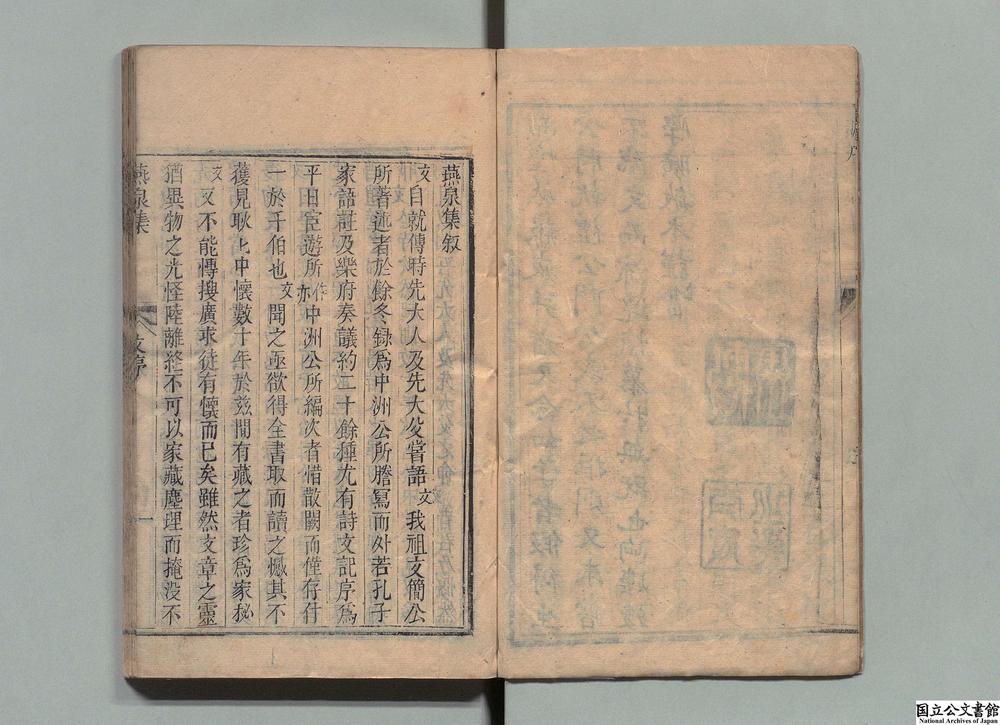 燕泉集叙
文自就傅時先大人及先大父嘗語文我祖文簡公
所著述者於餘冬録爲中洲公所謄寫而外若孔子
家語註及樂府奏議約二十餘種尤有詩文記序爲
平日宦遊所作亦中洲公所編次者惜散闕而僅存什
一於千伯也文聞之亟欲得全書取而讀之憾其不
獲見耿上中懷數十年於兹間有藏之者珍爲家秘
文又不能慱搜廣求徒有懷而已矣雖然文章之靈
猶異物之光怪陸離終不可以家藏塵理而掩没不
燕泉集
文序
一
国立公文書館
National Archives of Japan